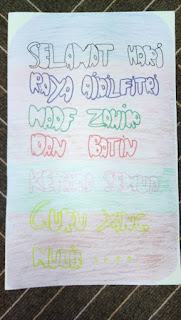 SELAMAT HARI
RAYA AIDILFITRI
MAAF ZAHIR
DAN BATIN
KEPADA SEMUA
GURU YANG